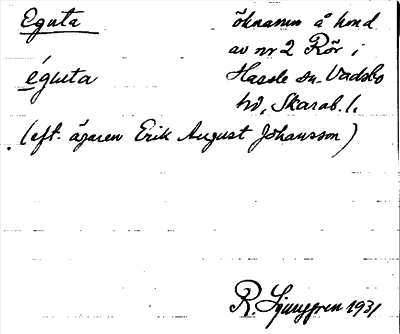 Eguta
öknamn å hund
av nr 2 Rör i
éguta
Hassle sn. Vadsbo
hd, Skarab. l.
(eft. ägaren Erik August Johansson)
R. Ljunggren 1931